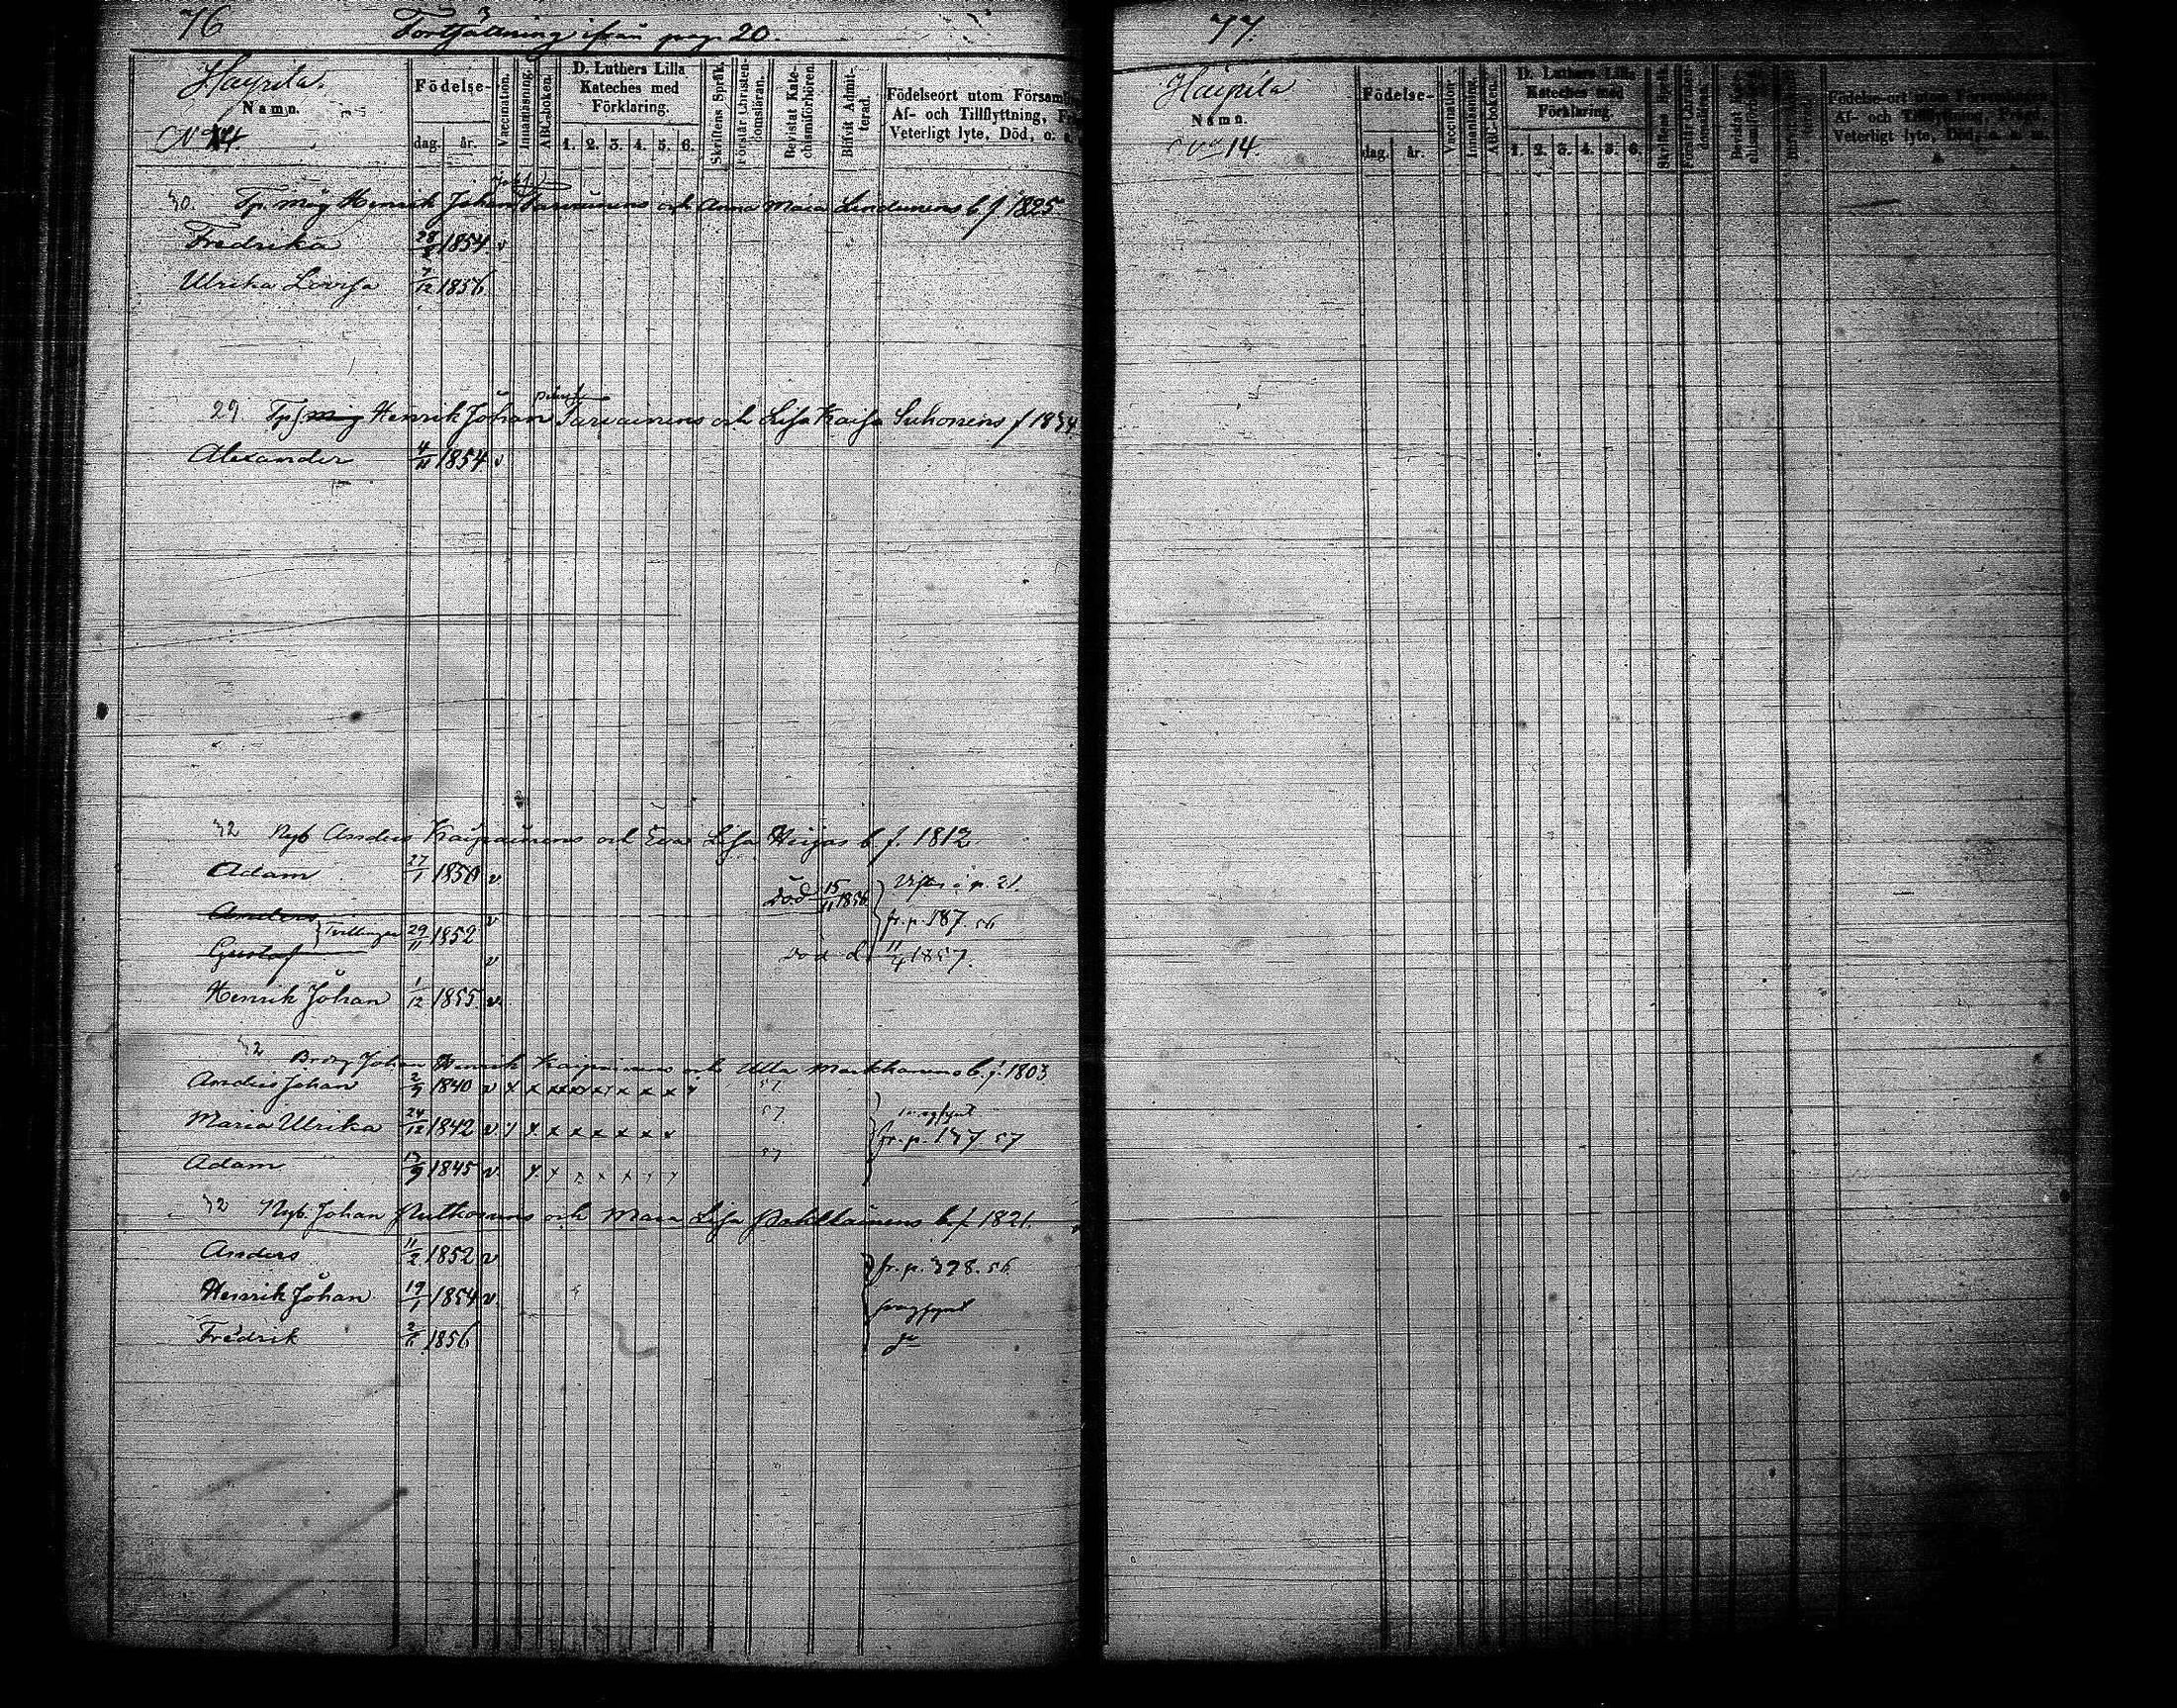 76
Fortsättning ifrån pag. 20.
Haypila.
Namn.
N
Födelse-
dag. år.
Vaccination.
Innanläsning.
ABC-boken.
D. Luthers Lilla
Kateches med
Förklaring.
1. 2. 3. 4. 5. 6.
Skriftens Språk.
Förstår Christen-
domsläran.
Bevistat Kate-
chismiförhören.
Blifvit Admit-
terad.
Födelseort utom Församl
Af- och Tillflyttning, Fr
Veterligt lyte, Död, o.
30. Tp. måg Henrik Johan Tarvainens och Anna Maria b. f. 1825
Fredrika 1854 v
Ulrika Lovisa 7/12 1856
29 Tp. måg Henrik Johan Tarvainens och Lisa Kaisa Suhonens f 1834
Alexander 1854 v
32 Nyb. Anders Kaipainens och Eva Lisa b. f. 1812
Adam 27/1 1850 v
Anders v död 15/11 1856 p. 21.
Tvillingar 29/11 1852 fr. p. 187. 56
Gustaf v död d. 11/4 1857.
Henrik Johan 1/12 1855 v
32 Johan Henrik Kaipainens och Ulla Markkanens b. f. 1803
Anders Johan 2/9 1840 v x x x x x x x x x 57
Maria Ulrika 24/12 1842 v x x x x x x x x 57 fr. p. 137 57
Adam 1845 v x x x x x x x 57
32 Nyb. Johan Pulkonens och Maria Lisa b. f. 1821.
Anders 11/2 1852 v fr. p. 378. 56
Henrik Johan 19/1 1854 v
Fredrik 1856
77.
Haipila
Namn.
No 14.
Födelse-
dag. år.
Vaccination.
Innanläsning.
ABC-boken.
D. Luthers Lilla
Kateches med
Förklaring.
1. 2. 3. 4. 5. 6.
Födelse-ort utom Församlingen
Af- och Tillflyttning, Frejd,
Veterligt lyte, Död, o. s. v.